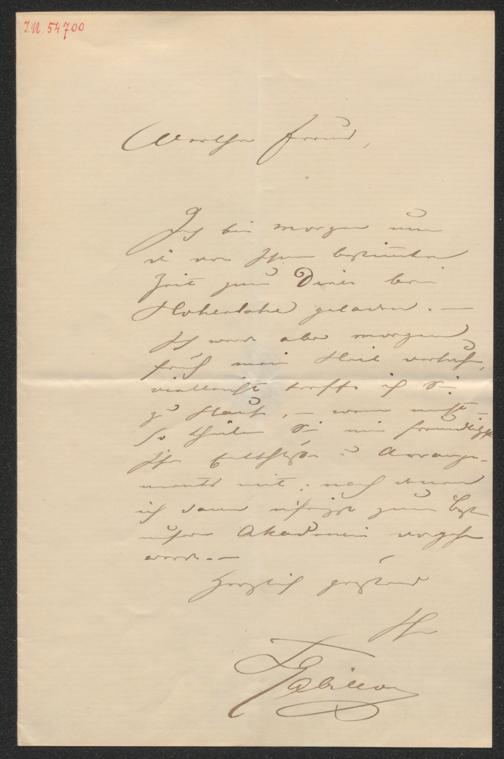 I.N. 54700
Werther Freund,
Ich bin morgen um
die von Ihnen bestimmte
Zeit zum Diner beim
Hohenlohe geladen. —
Ich werde aber morgen
früh mein Heil versuchen,
vielleicht treffe ich Sie
zu Hause, — wenn nicht —
so theilen Sie mir freundlichst
Ihre Entschlüsse u Arrange-
ments mit; nach denen
ich dann zum
unserer Akademie
werde. —
Herzlich grüßend
Ihr
LGabillon